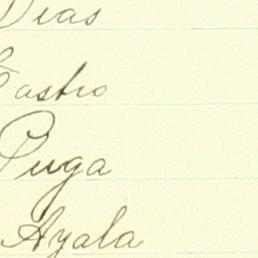 Dias
Castro
Puga
Ayala